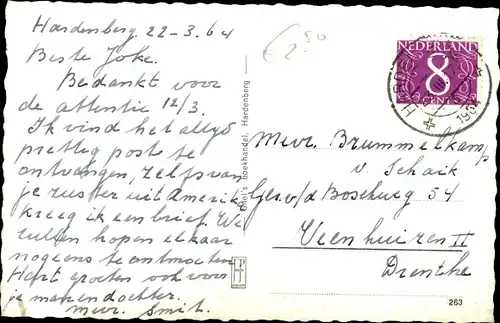 Hardenberg 22-3.64
Beste Joke.
Bedankt voor
de attentie 12/3.
Ik vind het altyd
prettig post te
ontvangen, zelfs van
je zuster uit Amerik
kreeg ik een brief. We
zullen hopen elkaar
nog eens te ontmoeten
Hart groeten ook voor
je man en dochter.
mevr. Smit.
€2.50
Boekhandel, Hardenberg
JP
NEDERLAND
8
CENT
1964
Mevr. Brummelkamp
v. Schaik
v/d Boschweg 54
Veenhuizen II
Drenthe
263